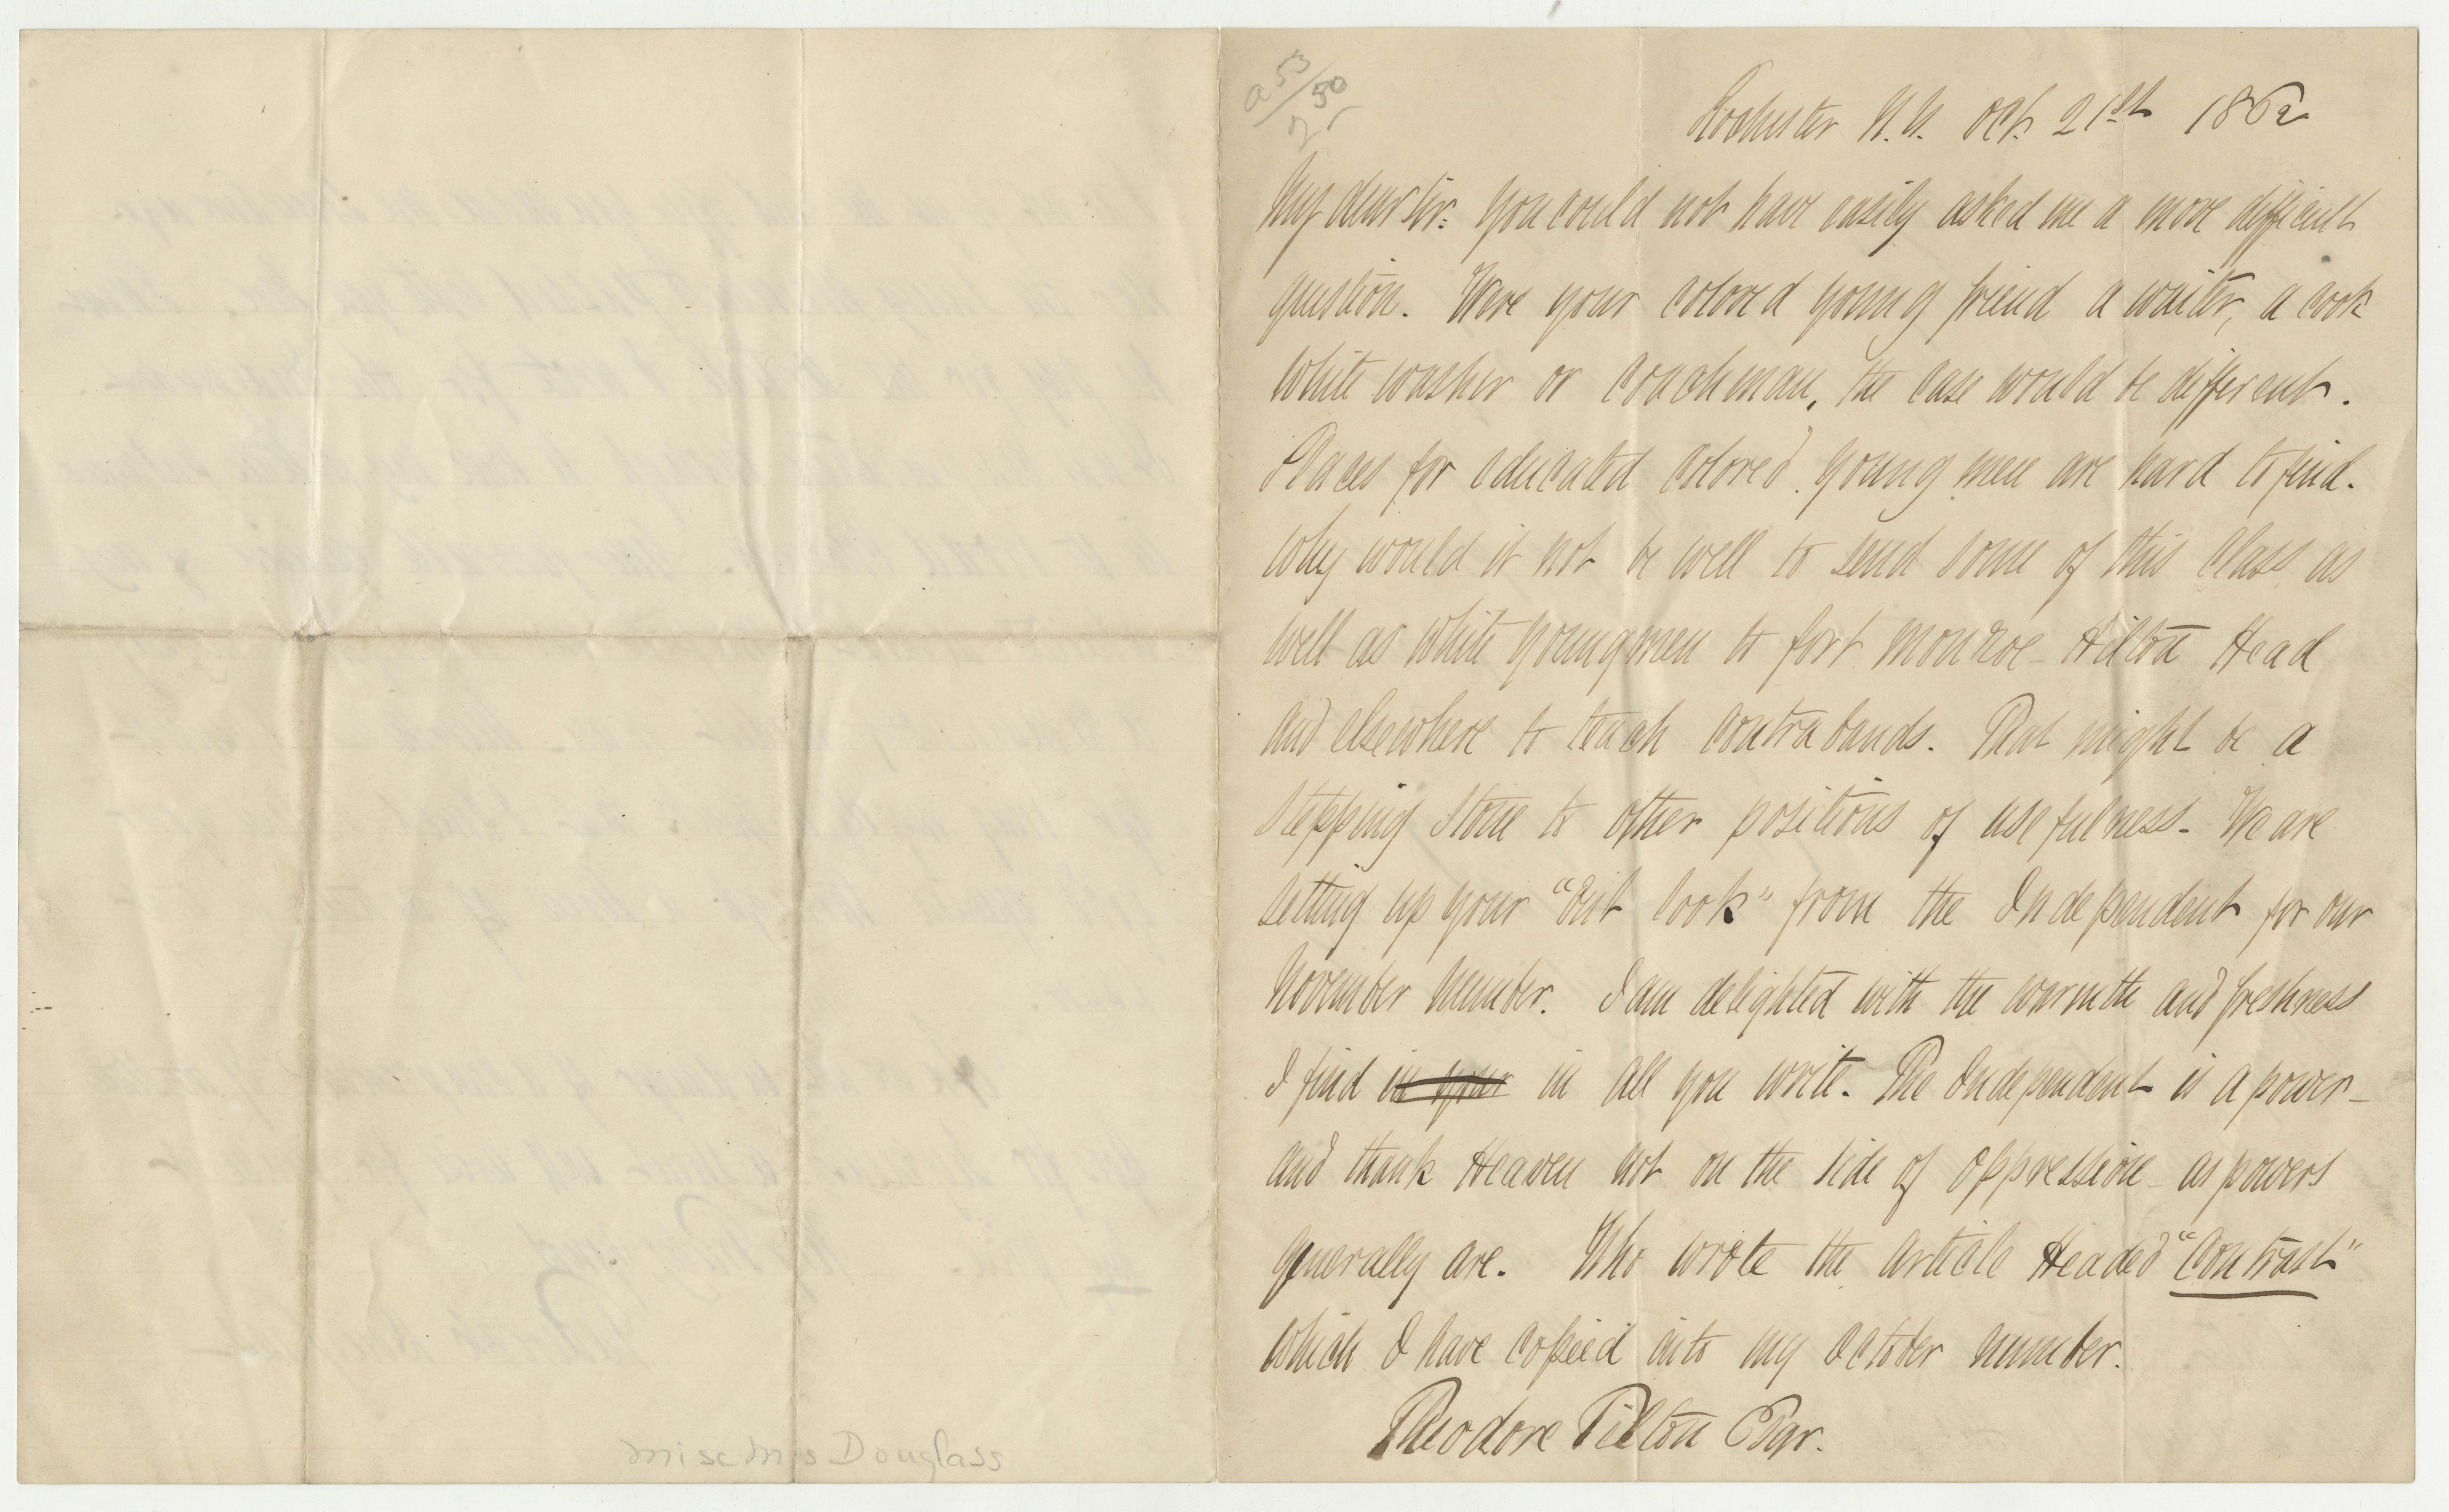 misc mss Douglass
a 53/50
75
Rochester N.Y. Oct. 21st 1862
My dear Sir: You could not have easily asked me a more difficult
question. Were your colored young friend a waiter, a cook
white washer or coachman, the case would be different.
Places for educated colored young men are hard to find.
Why would it not be well to send some of this class as
well as white young men to fort Monroe - Hilton Head
and elsewhere to teach contrabands. That might be a
stepping stone to other positions of usefulness - We are
setting up your "Out look" from the Independent for our
November Number. I am delighted with the warmth and freshness
I find in your in all you write. The Independent is a power -
and thank Heaven not on the side of oppression - as powers
generally are. Who wrote the article Headed "Contrast"
which I have copied into my October number.
Theodore Tilton Esqr.